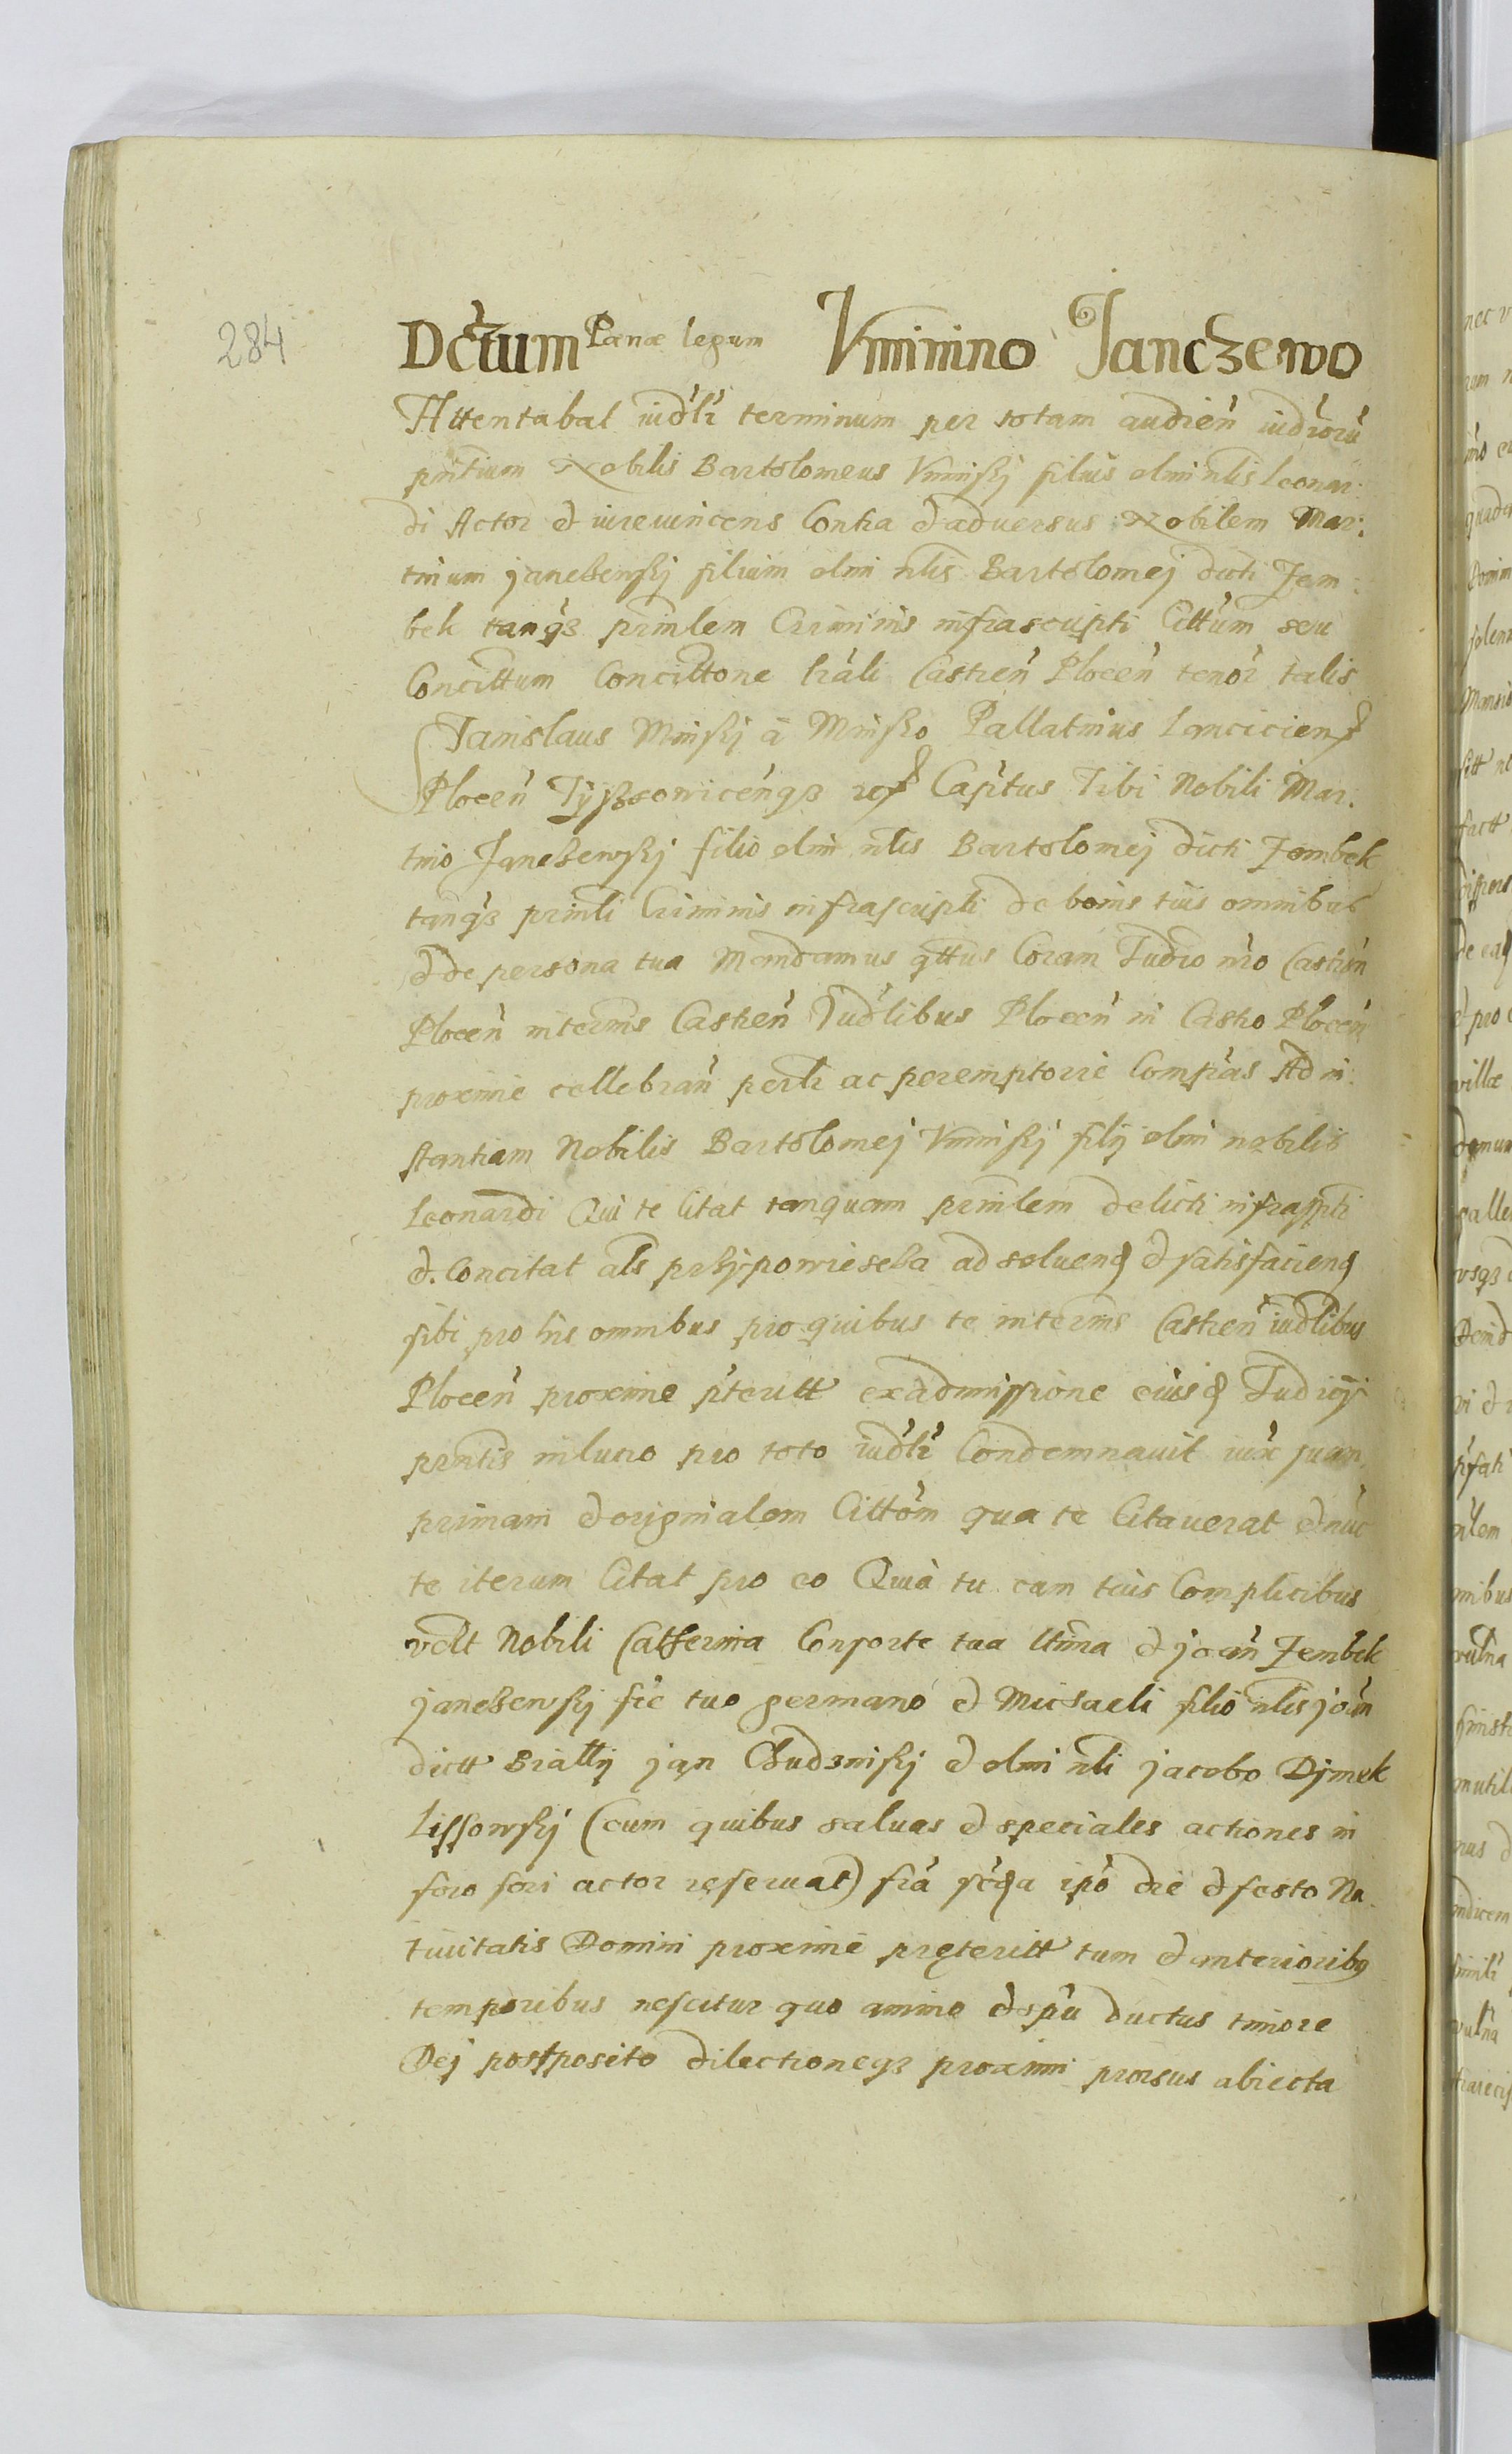 284
Dctum Pænæ legum Vminino Janczewo
Attentabat iudlr terminum per totam audien iudiorū
pntium Nobilis Bartolomeus Vminskj filius olim nlis Leonar:
di Actor & iurevincens Contra & adversus Nobilem Mar:
tinum Janczewskj filium olim nlis Bartolomej dicti Zem:
bek tanqз prinlem Criminis infrascripti Cittum seu
Concittum Concittone hrali Castren Plocen tenor talis
Stanislaus Minskj à Minsko Pallatinus Lancicien
Plocen Tyszowicenqз Capitus Tibi Nobili Mar:
tino Janczewskj filio olim nlis Bartolomej dicti Zembek
tanqз prinli Criminis infrascripti de bonis tuis omnibus
& de persona tua Mandamus qttus Coram Judio nro Castren
Plocen in termis Castren Judlibus Plocen in Castro Plocen
proxime cellebran perlr ac peremptorie Compras Ad in:
stantiam Nobilis Bartolomej Vminskj filij olim nobilis
Leonardi Qui te Citat tanquam prinlem delicti infrassptis
&. Concitat als przypowiescza ad soluend & satisfaciend
sibi pro his omnibus pro quibus te in termis Castren iudlibus
Plocen proxime pteritt ex admissione eiusd Judicij
prntis in lucro pro toto iudlr Condemnauit iux suam
primam & originalem Cittom qua te Citauerat & nuc
te iterum Citat pro eo Quia tu cum tuis Complicibus
vdlt Nobili Catherina Consorte tua ltima & joan Zembek
janczewskj fre tuo germano & Michaeli filio nlis joan
dictt Biallÿ jan Chudzinskj & olim nli jacobo Dÿmek
Lissowskj (cum quibus saluas & speciales actiones in
foro fori actor reseruat) fra scda ipo die & festo Na
tiuitatis Domini proxime pręteritt tum & anterioribg
temporibus nescitur quo animo & spu ductus timore
Dej postposito dilectioneqз proximi prorsus abiecta